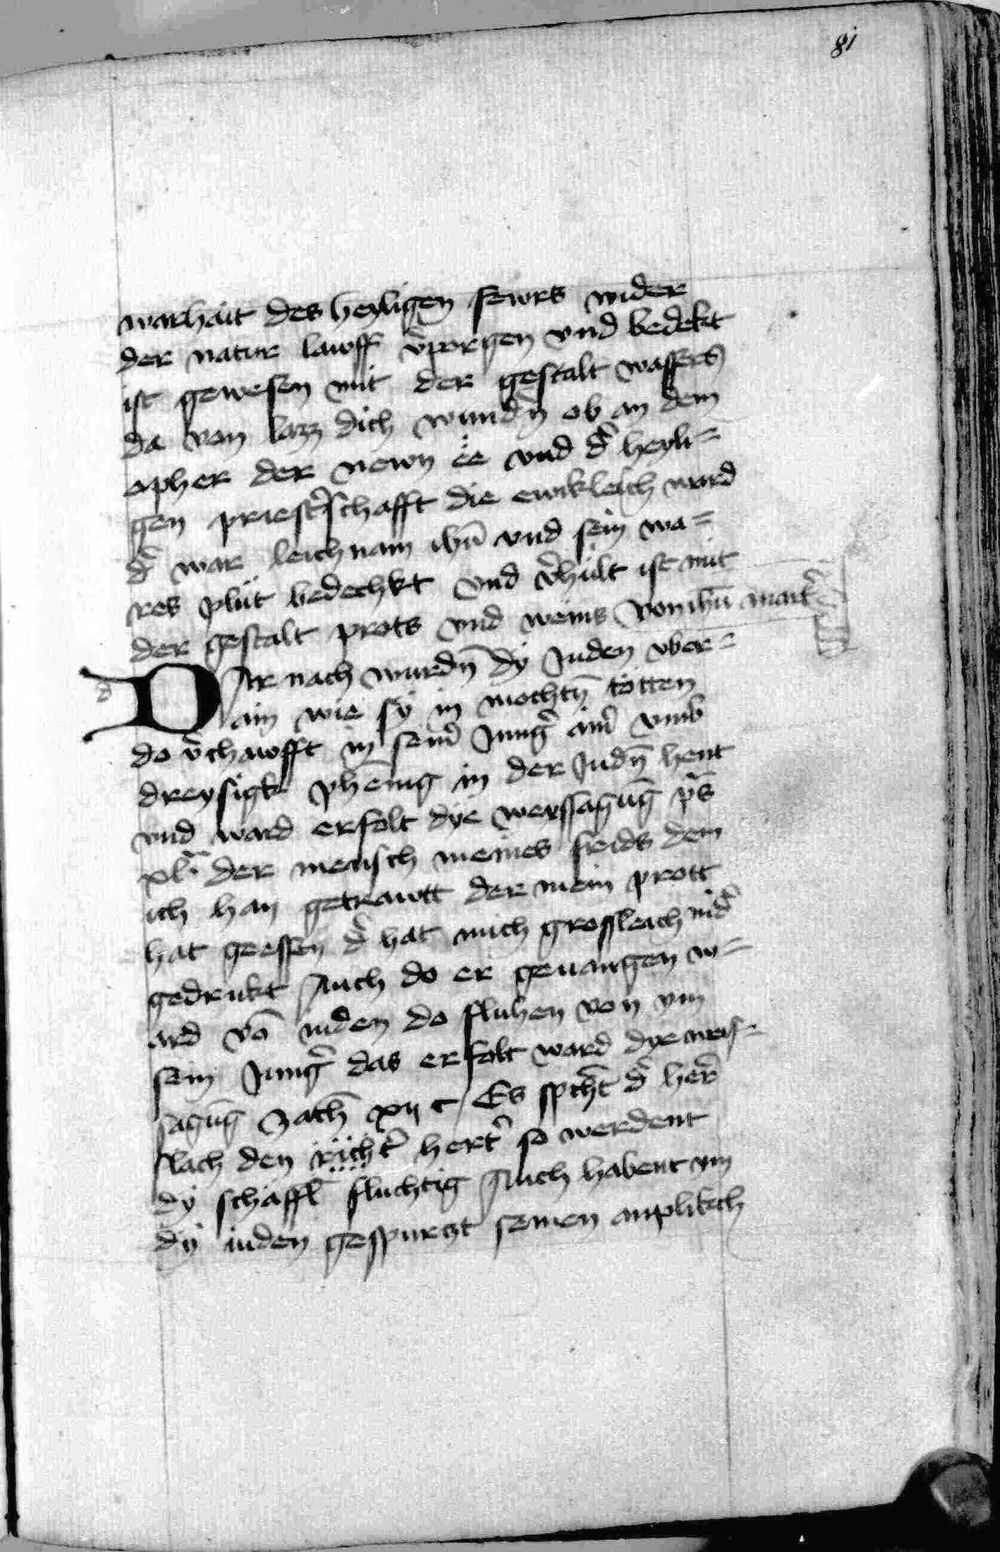 81
warhait des heyligen fewrs wider
der natur lawff v̄porgen vnd bedekt
ist gewesen mit der gestalt wassers
da von lazz dich wundn̄ ob an dem
opher der newn ee vnd d̄ heyli=
gen priest̄schafft die ewikleich ward
d̄ war leichnam ih̄u vnd sein wa=
res plüt bedechkt vnd v̄hült ist mit
der gestalt prots vnd weins von ih̄u mart̄
d
DAr nach wurdn̄ dy Juden vber=
ain wie sy in mochtn̄ tötten
do v̄chawfft in sein̄ Junḡ ain̄ vmb
dreysigk phēnig in der Judn̄ hent
vnd ward erfolt dye weyssagūg p̄s
xl. der mensch meines frids dem
ich han getrawtt der mein prott
hat geessen d̄ hat mich grossleich nid̄
gedrukt Auch do er geuangen w=
ard vō iuden do fluhen von ym
sein Junḡ das erfolt ward dye weis=
sagūg zach̄ xij c Es sp̄cht d̄ her̄
slach den richt̄ hert̄ so werdent
dy schäffl̄ fluchtig Auch habent ym
dy iuden gespurczt seinen anplikch